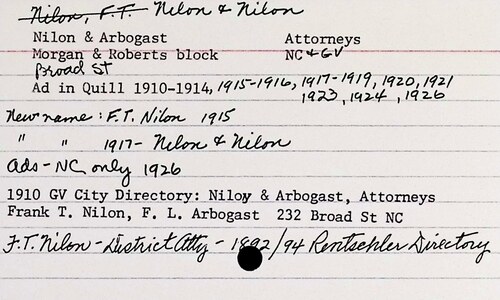 Nilon, F.T. Nilon & Nilon
Nilon & Arbogast Attorneys
Morgan & Roberts block NC & GV
Broad St
Ad in Quill 1910-1914, 1915-1916, 1917-1919, 1920, 1921
1923, 1924, 1926
New name: F.T. Nilon 1915
" " 1917- Nilon & Nilon
Ads- NC only 1926
1910 GV City Directory: Niloy & Arbogast, Attorneys
Frank T. Nilon, F. L. Arbogast 232 Broad St NC
F.T. Nilon - District Atty - 1892/94 Rentschler Directory